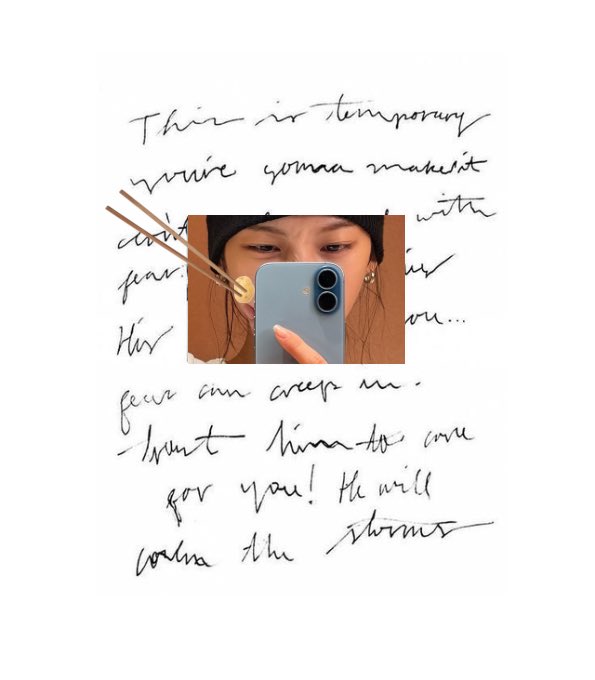 This is temporary
you're gonna make it
don't with
fear.
His ou...
fear can creep in.
trust him to care
for you! He will
calm the storms